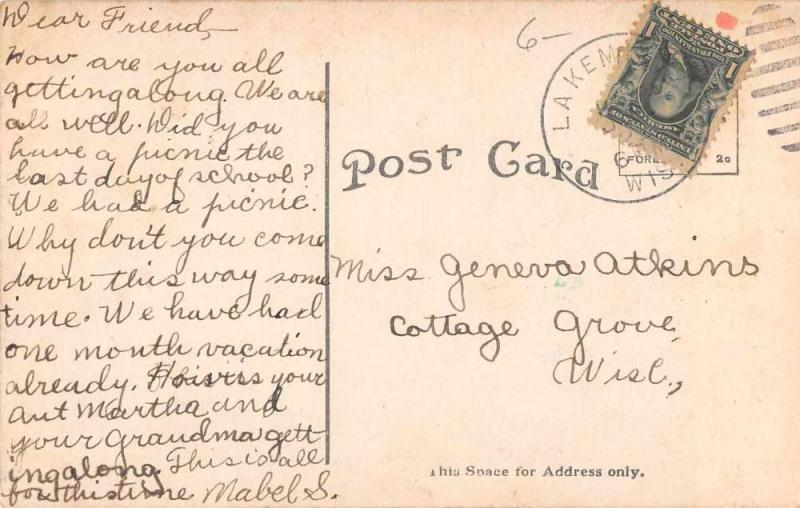 Dear Friend,
How are you all
gettingalong. We are
all well. Did you
have a picnic the
last day of school?
We had a picnic.
Why don't you come
down this way some
time. We have had
one month vacation
already. your
aut Martha and
your Grandma gett
ingalong. This is all
for this time Mabel S.
6-
LAKEM
WIS
1
1
FOREI 2c
Post Card
Miss Geneva Atkins
Cottage Grove,
Wisc.,
This Space for Address only.